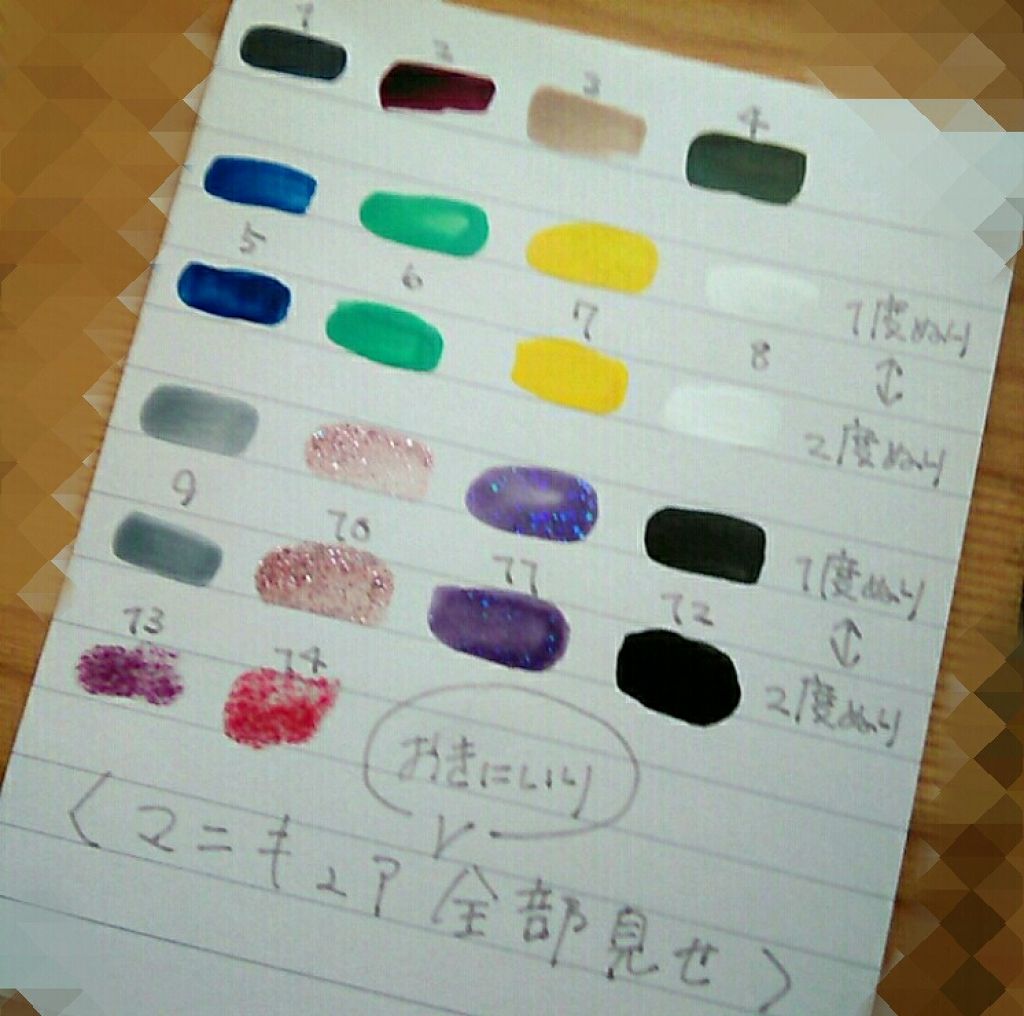 1 2 3 4
5 6 7 8
1度ぬり
↕
2度ぬり
9 10 11 12
1度ぬり
↕
2度ぬり
13 14
おきにいり
<マニキュア全部見せ>